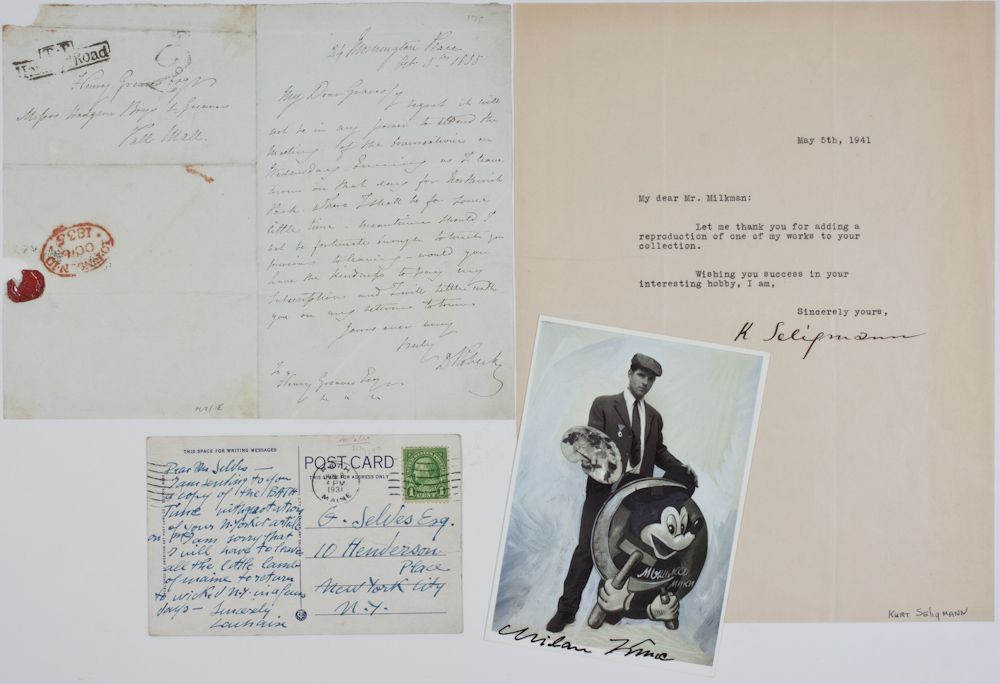 T.P
Road
Henry Greaves Esqr
Pall Mall.
24 Mornington Place
Oct 5th 1835
My Dear Greaves
I regret it will
not be in my power to attend the
Meeting of the on
Wednesday Evening as I leave
town on that day for
Park. Where I shall be for some
little time. Meantime should I
not be fortunate enough to meet you
previous to leaving – would you
have the kindness to pay my
Subscription and I will settle with
you on my return to town
Yours ever very
truly
To
Henry Greaves Esq
1835
May 5th, 1941
My dear Mr. Milkman:
Let me thank you for adding a
reproduction of one of my works to your
collection.
Wishing you success in your
interesting hobby, I am,
Sincerely yours,
K Seligmann
KURT SEligMANN
THIS SPACE FOR WRITING MESSAGES
Dear Mr Seldes —
I am sending to you
a copy of the BATH
Time with quotation
of your N.Yorker article
I am sorry that
I will have to leave
all the little lambs
of maine to return
to wicked N.Y. in a few
days — Sincerely
Lachaise
POST CARD
THIS SPACE FOR ADDRESS ONLY
BATH
PM
1931
MAINE
1 CENT 1
G. Seldes Esq.
10 Henderson
Place
New York City
N.Y.
МЫШКА
МИКИ
Milan Kunc